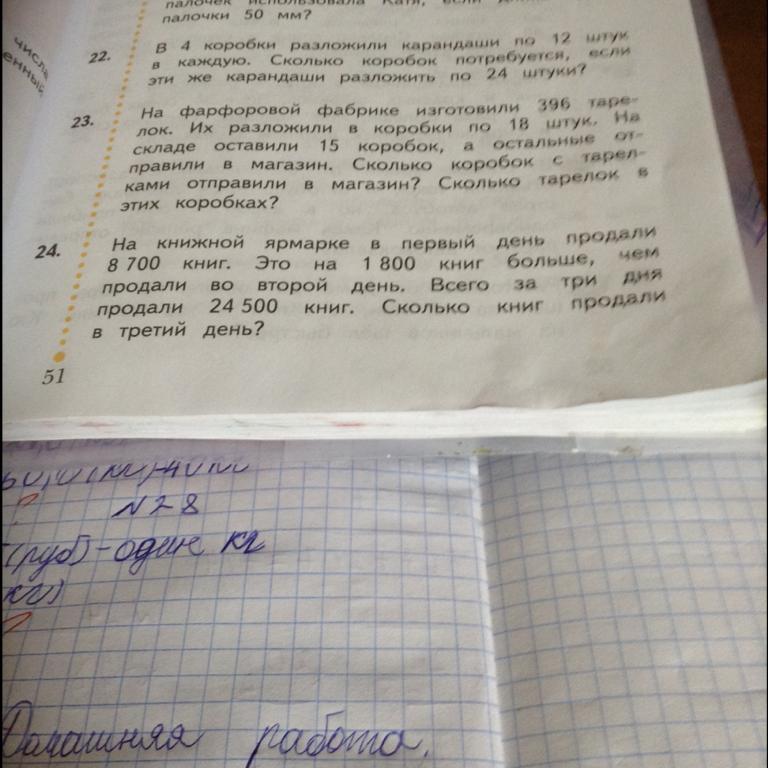 палочек использовала Катя, если
палочки 50 мм?
числа
енный
22. В 4 коробки разложили карандаши по 12 штук
в каждую. Сколько коробок потребуется, если
эти же карандаши разложить по 24 штуки?
23. На фарфоровой фабрике изготовили 396 таре-
лок. Их разложили в коробки по 18 штук. На
складе оставили 15 коробок, а остальные от-
правили в магазин. Сколько коробок с тарел-
ками отправили в магазин? Сколько тарелок в
этих коробках?
24. На книжной ярмарке в первый день продали
8 700 книг. Это на 1 800 книг больше, чем
продали во второй день. Всего за три дня
продали 24 500 книг. Сколько книг продали
в третий день?
51
N28
(руб)-один кг
кг)
Домашняя работа.